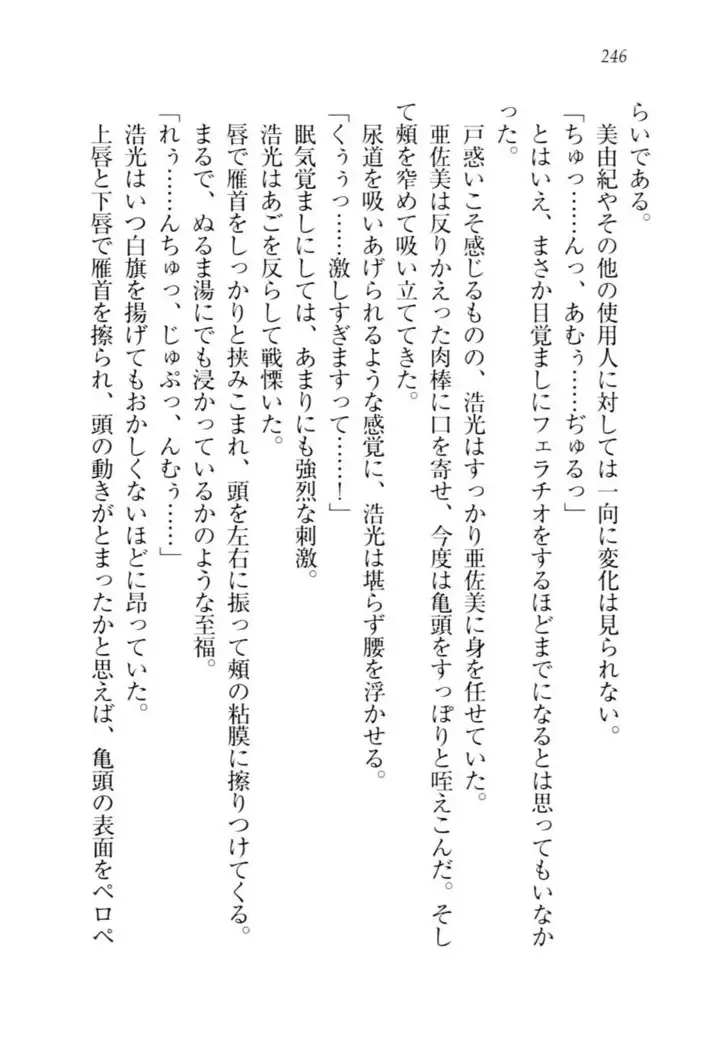 246
らいである。
美由紀やその他の使用人に対しては一向に変化は見られない。
「ちゅっ……んっ、あむぅ……ぢゅるっ」
とはいえ、まさか目覚ましにフェラチオをするほどまでになるとは思ってもいなか
った。
戸惑いこそ感じるものの、浩光はすっかり亜佐美に身を任せていた。
亜佐美は反りかえった肉棒に口を寄せ、今度は亀頭をすっぽりと咥えこんだ。そし
て頰を窄めて吸い立ててきた。
尿道を吸いあげられるような感覚に、浩光は堪らず腰を浮かせる。
「くぅぅっ……激しすぎますって……！」
眠気覚ましにしては、あまりにも強烈な刺激。
浩光はあごを反らして戦慄いた。
唇で雁首をしっかりと挟みこまれ、頭を左右に振って頰の粘膜に擦りつけてくる。
まるで、ぬるま湯にでも浸かっているかのような至福。
「れぅ……んちゅっ、じゅぷっ、んむぅ……」
浩光はいつ白旗を揚げてもおかしくないほどに昂っていた。
上唇と下唇で雁首を擦られ、頭の動きがとまったかと思えば、亀頭の表面をペロペ